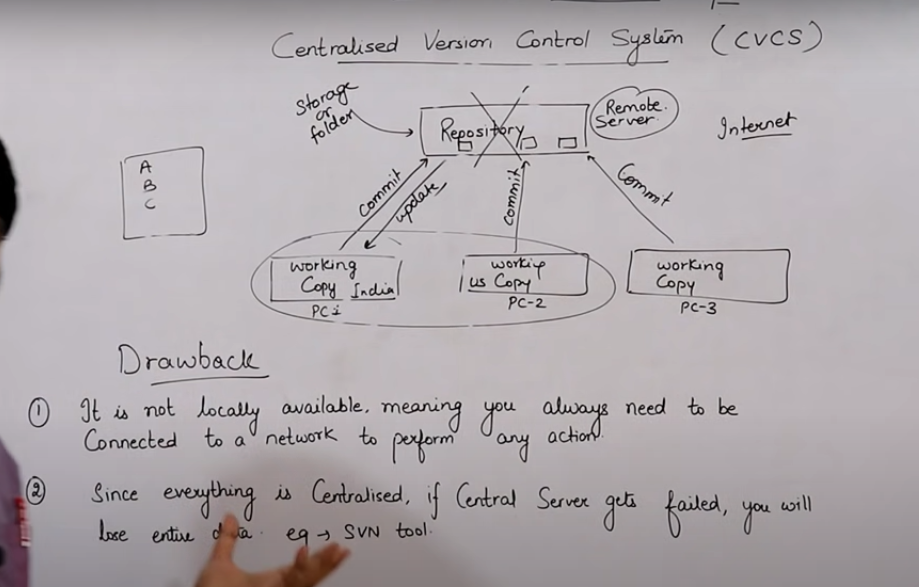 Centralised Version Control System (CVCS)
Storage
or
folder
Repository
Remote
Server
Internet
A
B
C
Commit
update
Commit
Commit
working
Copy India
PC1
workig
US Copy
PC-2
working
Copy
PC-3
Drawback
① It is not locally available, meaning you always need to be
Connected to a network to perform any action.
② Since everything is Centralised, if Central Server gets failed, you will
lose entire data. eg → SVN tool.